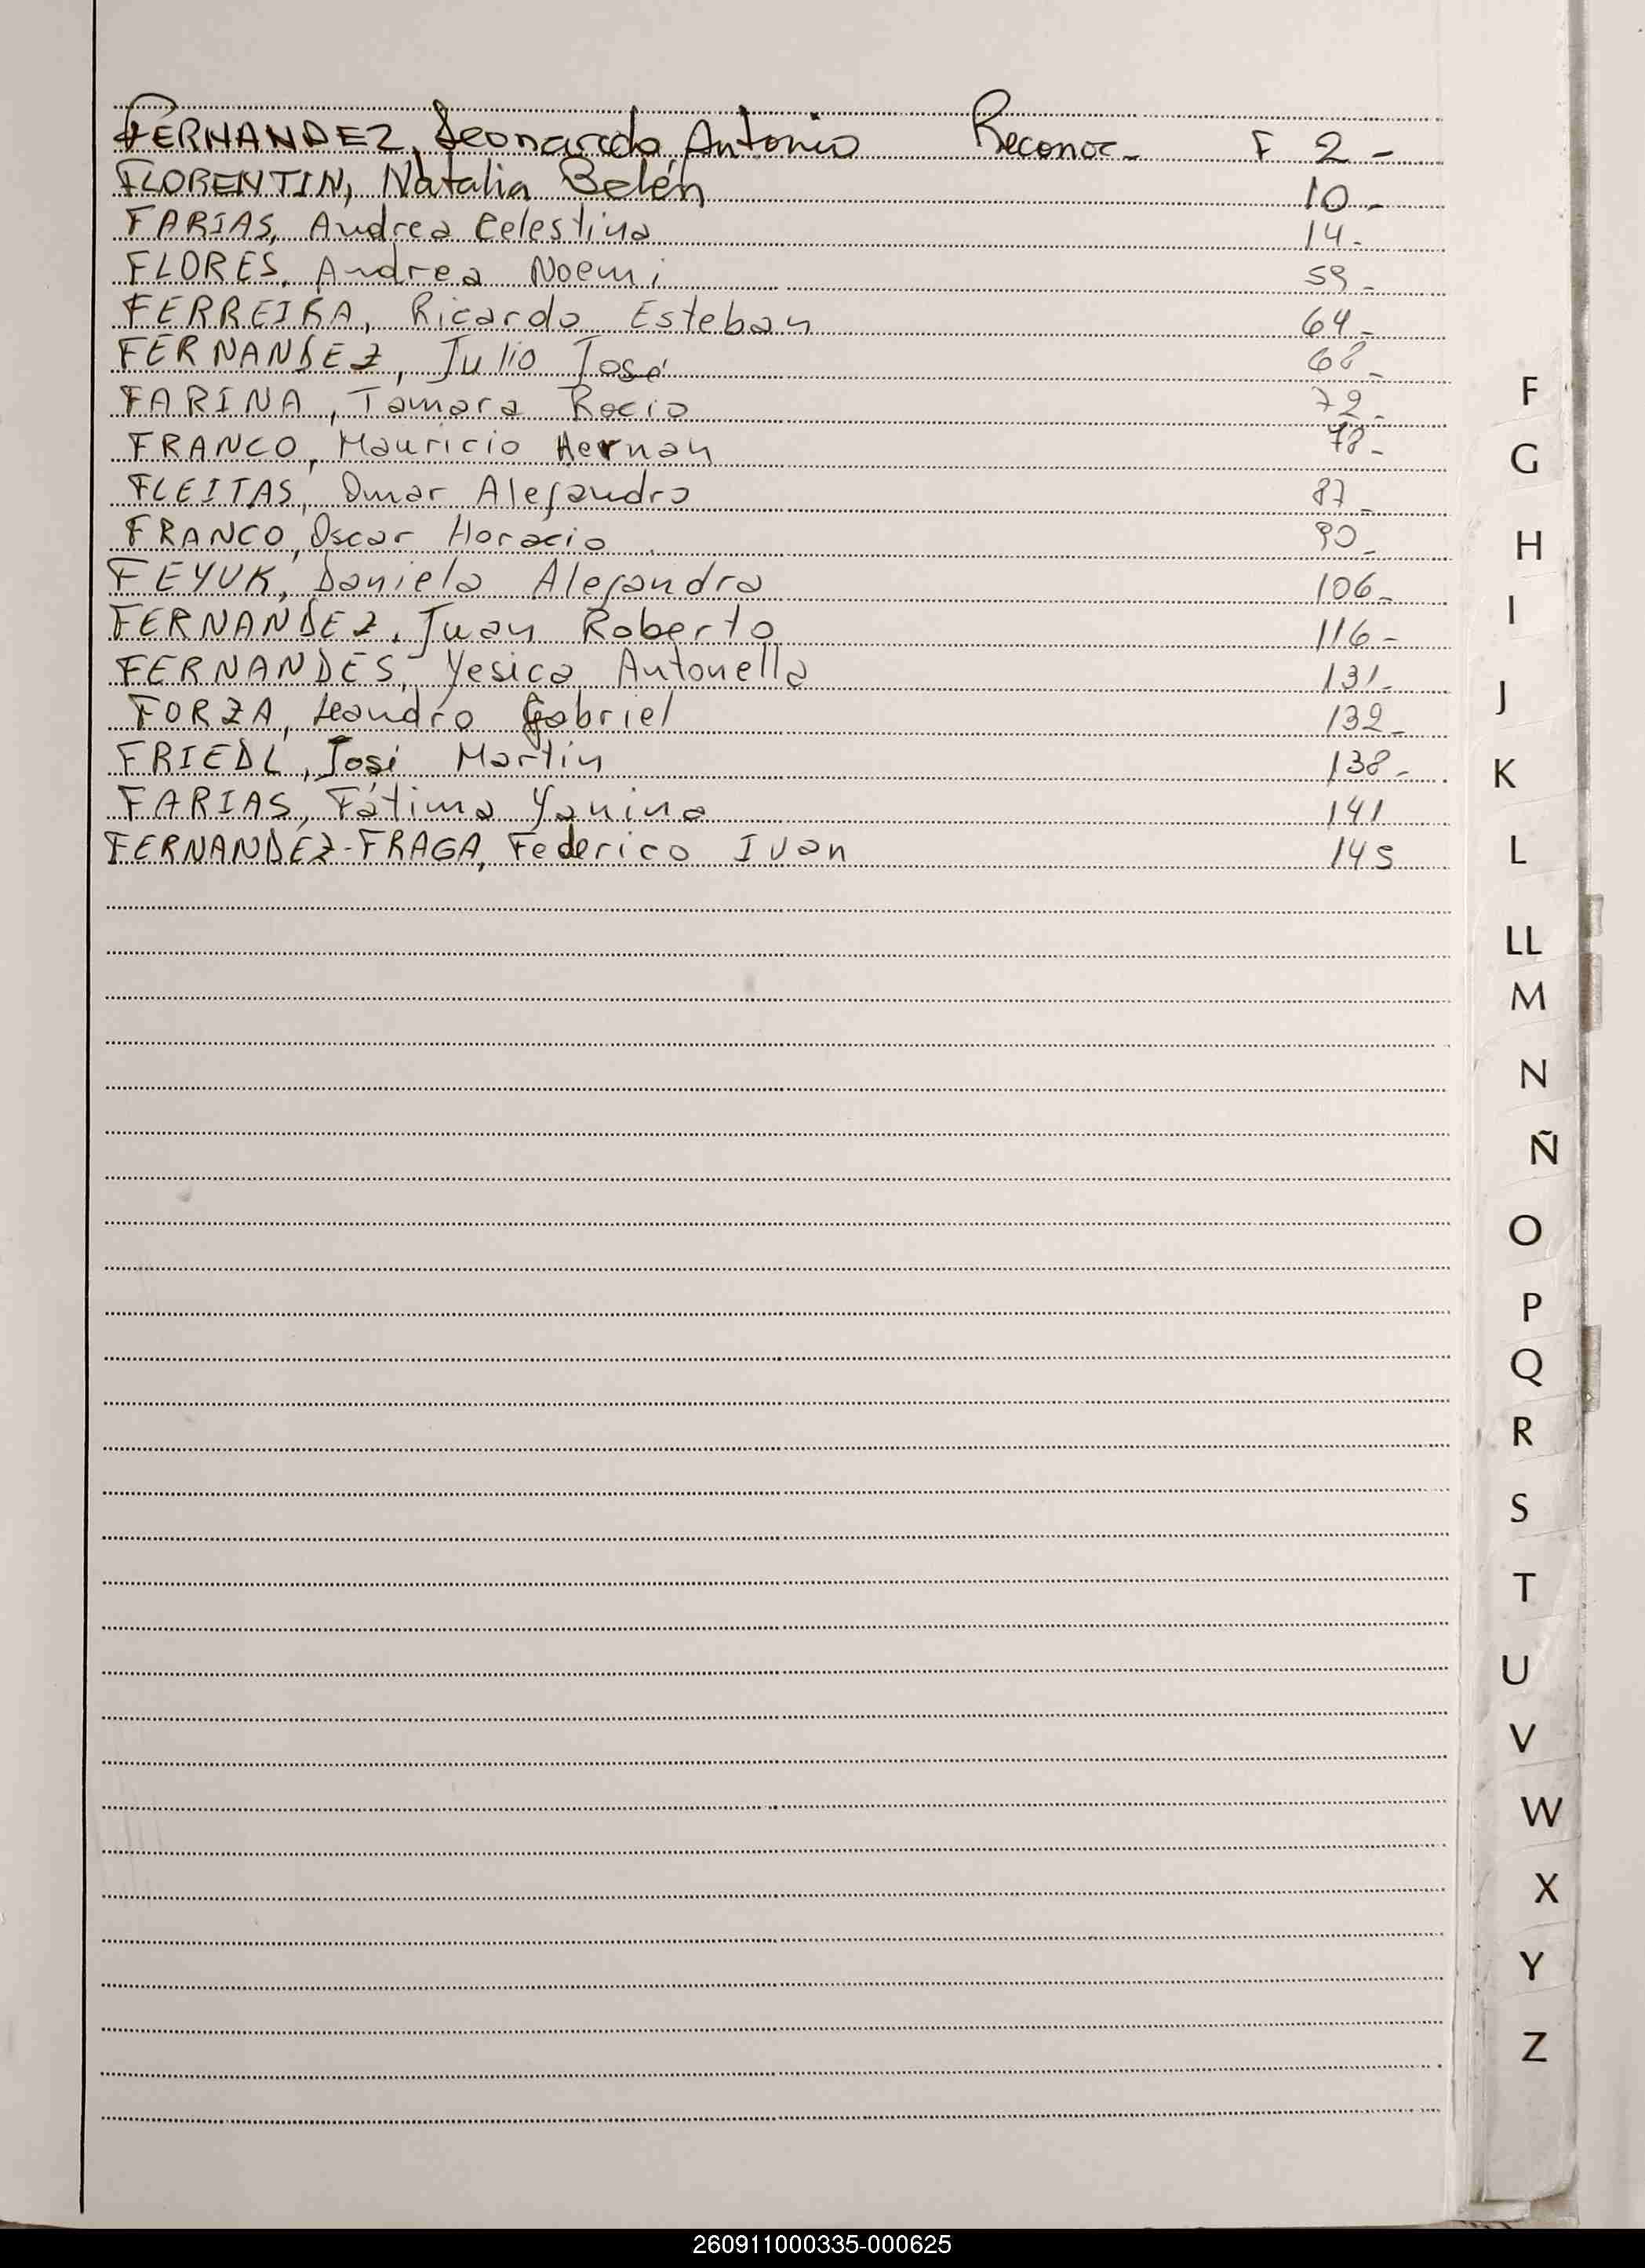 FERNANDEZ, Leonardo Antonio Reconoc- F 2-
FLORENTIN, Natalia Belén 10-
FARIAS, Andrea Celestina 14-
FLORES, Andrea Noemi 59-
FERREIRA, Ricardo Esteban 64-
FERNANDEZ, Julio José 68-
FARINA, Tamara Rocio 72-
FRANCO, Mauricio Hernan 78-
FLEITAS, Omar Alejandro 87-
FRANCO, Oscar Horacio 90-
FEYUK, Daniela Alejandra 106-
FERNANDEZ, Juan Roberto 116-
FERNANDES, Yesica Antonella 131-
FORZA, Leandro Gabriel 132-
FRIEDL, José Martin 138-
FARIAS, Fátima Yanina 141
FERNANDEZ-FRAGA, Federico Ivan 145
F
G
H
I
J
K
L
LL
M
N
Ñ
O
P
Q
R
S
T
U
V
W
X
Y
Z
260911000335-000625